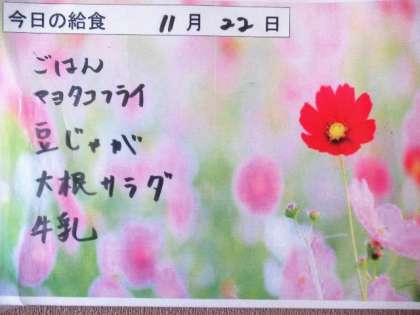 今日の給食 11月22日
ごはん
マヨタコフライ
豆じゃが
大根サラダ
牛乳